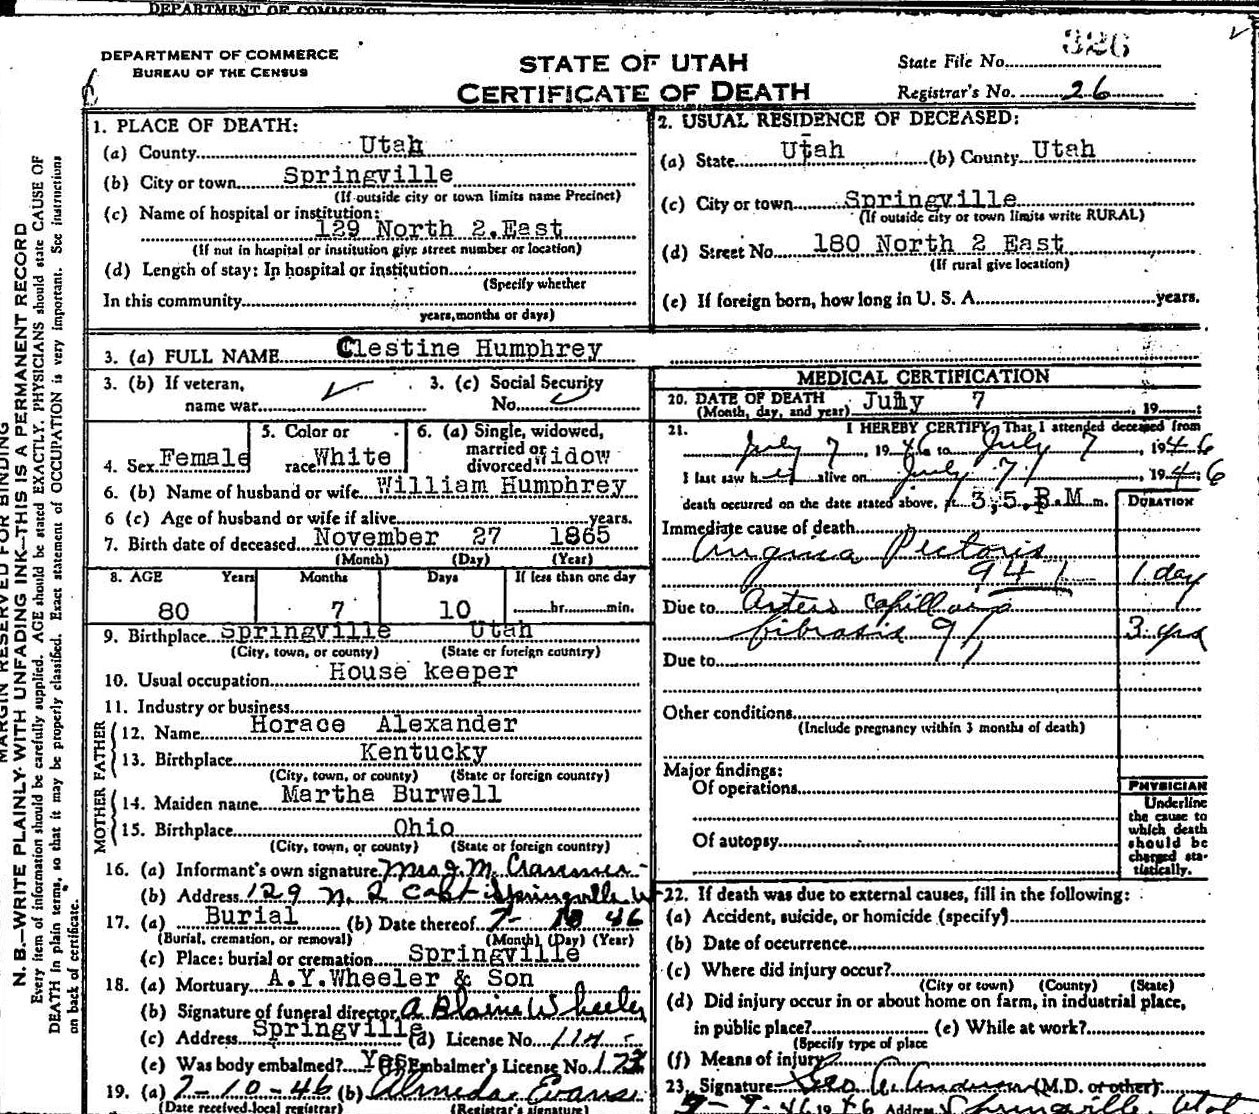 DEPARTMENT OF COMMERCE
DEPARTMENT OF COMMERCE
BUREAU OF THE CENSUS
STATE OF UTAH
CERTIFICATE OF DEATH
State File No. 326
Registrar's No. 26
MARGIN RESERVED FOR BINDING
N. B.—WRITE PLAINLY WITH UNFADING INK—THIS IS A PERMANENT RECORD
Every item of information should be carefully supplied. AGE should be stated EXACTLY. PHYSICIANS should state CAUSE OF
DEATH in plain terms, so that it may be properly classified. Exact statement of OCCUPATION is very important. See instructions
on back of certificate.
1. PLACE OF DEATH:
(a) County Utah
(b) City or town Springville
(If outside city or town limits name Precinct)
(c) Name of hospital or institution:
129 North 2.East
(If not in hospital or institution give street number or location)
(d) Length of stay: In hospital or institution
(Specify whether
In this community
years, months or days)
2. USUAL RESIDENCE OF DECEASED:
(a) State Utah (b) County Utah
(c) City or town Springville
(If outside city or town limits write RURAL)
(d) Street No. 180 North 2 East
(If rural give location)
(e) If foreign born, how long in U. S. A. years.
3. (a) FULL NAME Clestine Humphrey
3. (b) If veteran,
name war
3. (c) Social Security
No.
4. Sex Female
5. Color or
race White
6. (a) Single, widowed,
married or
divorced Widow
6. (b) Name of husband or wife William Humphrey
6 (c) Age of husband or wife if alive years.
7. Birth date of deceased November 27 1865
(Month) (Day) (Year)
8. AGE Years Months Days If less than one day
80 7 10 hr. min.
9. Birthplace Springville Utah
(City, town, or county) (State or foreign country)
10. Usual occupation House keeper
11. Industry or business
FATHER
12. Name Horace Alexander
13. Birthplace Kentucky
(City, town, or county) (State or foreign country)
MOTHER
14. Maiden name Martha Burwell
15. Birthplace Ohio
(City, town, or county) (State or foreign country)
16. (a) Informant's own signature Mrs J. M.
(b) Address 129 N. 2 East Springville
17. (a) Burial (b) Date thereof 7- 10 46
(Burial, cremation, or removal) (Month) (Day) (Year)
(c) Place: burial or cremation Springville
18. (a) Mortuary A.Y.Wheeler & Son
(b) Signature of funeral director A Blaine Wheeler
(c) Address Springville (d) License No.
(e) Was body embalmed? Yes Embalmer's License No.
19. (a) 7-10-46 (b) Almeda Evans
(Date received local registrar) (Registrar's signature)
MEDICAL CERTIFICATION
20. DATE OF DEATH
(Month, day, and year) July 7 , 19
21. I HEREBY CERTIFY, That I attended deceased from
July 7, 1946 to July 7, 1946
I last saw her alive on July 7, 1946
death occurred on the date stated above, at 3,5.P.M m.
DURATION
Immediate cause of death
Angina Pectoris
94 1 day
Due to Arterio capillary
fibrosis 97 3 yrs
Due to
Other conditions
(Include pregnancy within 3 months of death)
Major findings:
Of operations
Of autopsy
PHYSICIAN
Underline
the cause to
which death
should be
charged sta-
tistically.
22. If death was due to external causes, fill in the following:
(a) Accident, suicide, or homicide (specify)
(b) Date of occurrence
(c) Where did injury occur?
(City or town) (County) (State)
(d) Did injury occur in or about home on farm, in industrial place,
in public place? (e) While at work?
(Specify type of place
(f) Means of injury
23. Signature Geo A. Anderson (M.D. or other)
46 Address Springville